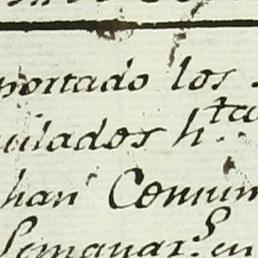 portado los
uilados h.ta
han Comun
Semanar.s en